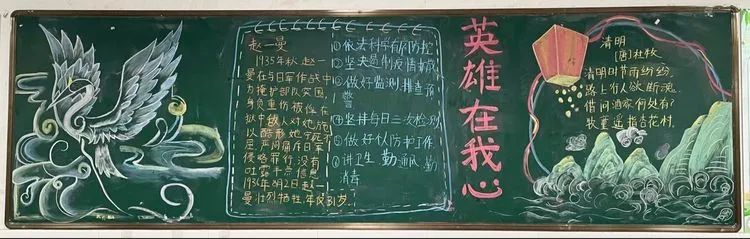 赵一曼
1935年秋,赵一
曼在与日军作战中
为掩护部队突围,
身负重伤被俘在
狱中敌人对她施
以酷刑她宁死不
屈,严词痛斥日军
侵略罪行,没有
吐露半点信息
1936年8月2日赵一
曼壮烈牺牲,年仅31岁。
①依法科学有序防控
②坚决遏制疫情扩散
③做好监测,排查,预
警
④坚持每日三次检测
⑤做好个人防护工作
⑥讲卫生,勤通风,勤
消毒
英雄在我心
清明
[唐]杜牧
清明时节雨纷纷,
路上行人欲断魂。
借问酒家何处有?
牧童遥指杏花村。